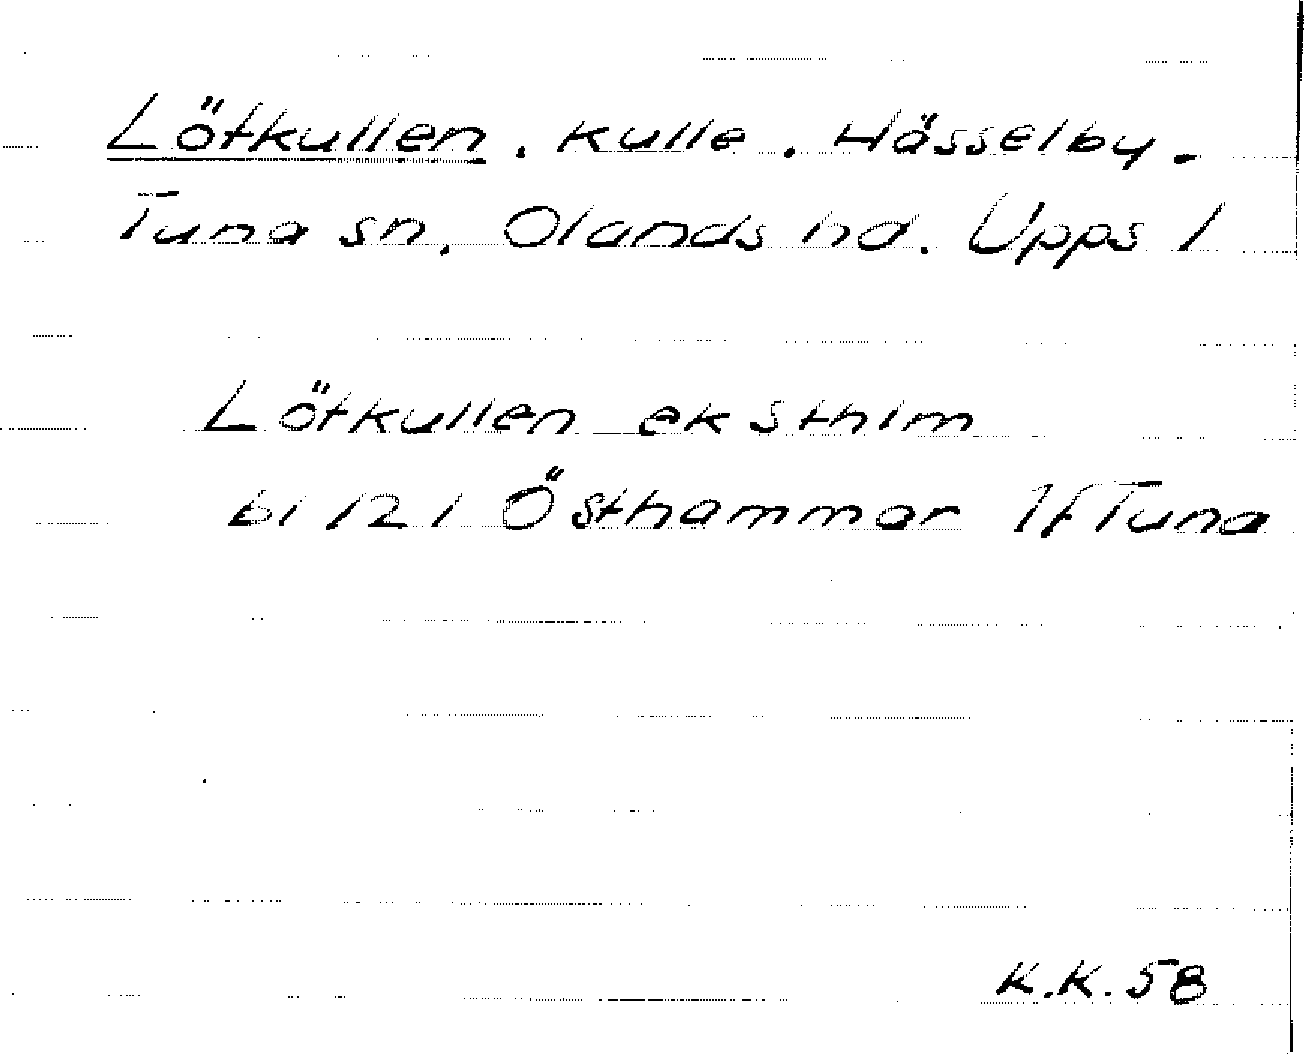 Lötkullen. kulle. Hässelby.
Tuna sn. Olands hd. Upps l
Lötkullen ek Sthlm
bl 121 Östhammar 1f Tuna
K.K. 58